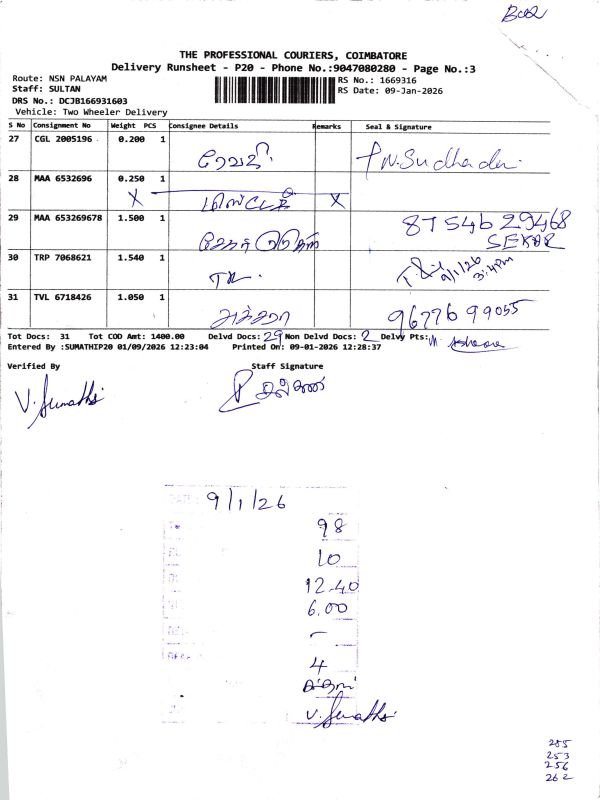 Bc02
THE PROFESSIONAL COURIERS, COIMBATORE
Delivery Runsheet - P20 - Phone No.:9047080280 - Page No.:3
Route: NSN PALAYAM
RS No.: 1669316
Staff: SULTAN
RS Date: 09-Jan-2026
DRS No.: DCJB166931603
Vehicle: Two Wheeler Delivery
S No Consignment No Weight PCS Consignee Details Remarks Seal & Signature
27 CGL 2005196 0.200 1 ரேவதி N. Sudhadu
28 MAA 6532696 0.250 1 X X
29 MAA 653269678 1.500 1 8754629468
SEKAR
30 TRP 7068621 1.540 1 9/1/26 3:4pm
31 TVL 6718426 1.050 1 அக்சரா 9677699055
Tot Docs: 31 Tot COD Amt: 1400.00 Delvd Docs: 29 Non Delvd Docs: 2 Delvy Pts:
Entered By :SUMATHIP20 01/09/2026 12:23:04 Printed On: 09-01-2026 12:28:37
Verified By Staff Signature
V. Sumathi
DATE: 9/1/26
98
10
12.40
6.00
-
4
V. Sumathi
255
253
256
262